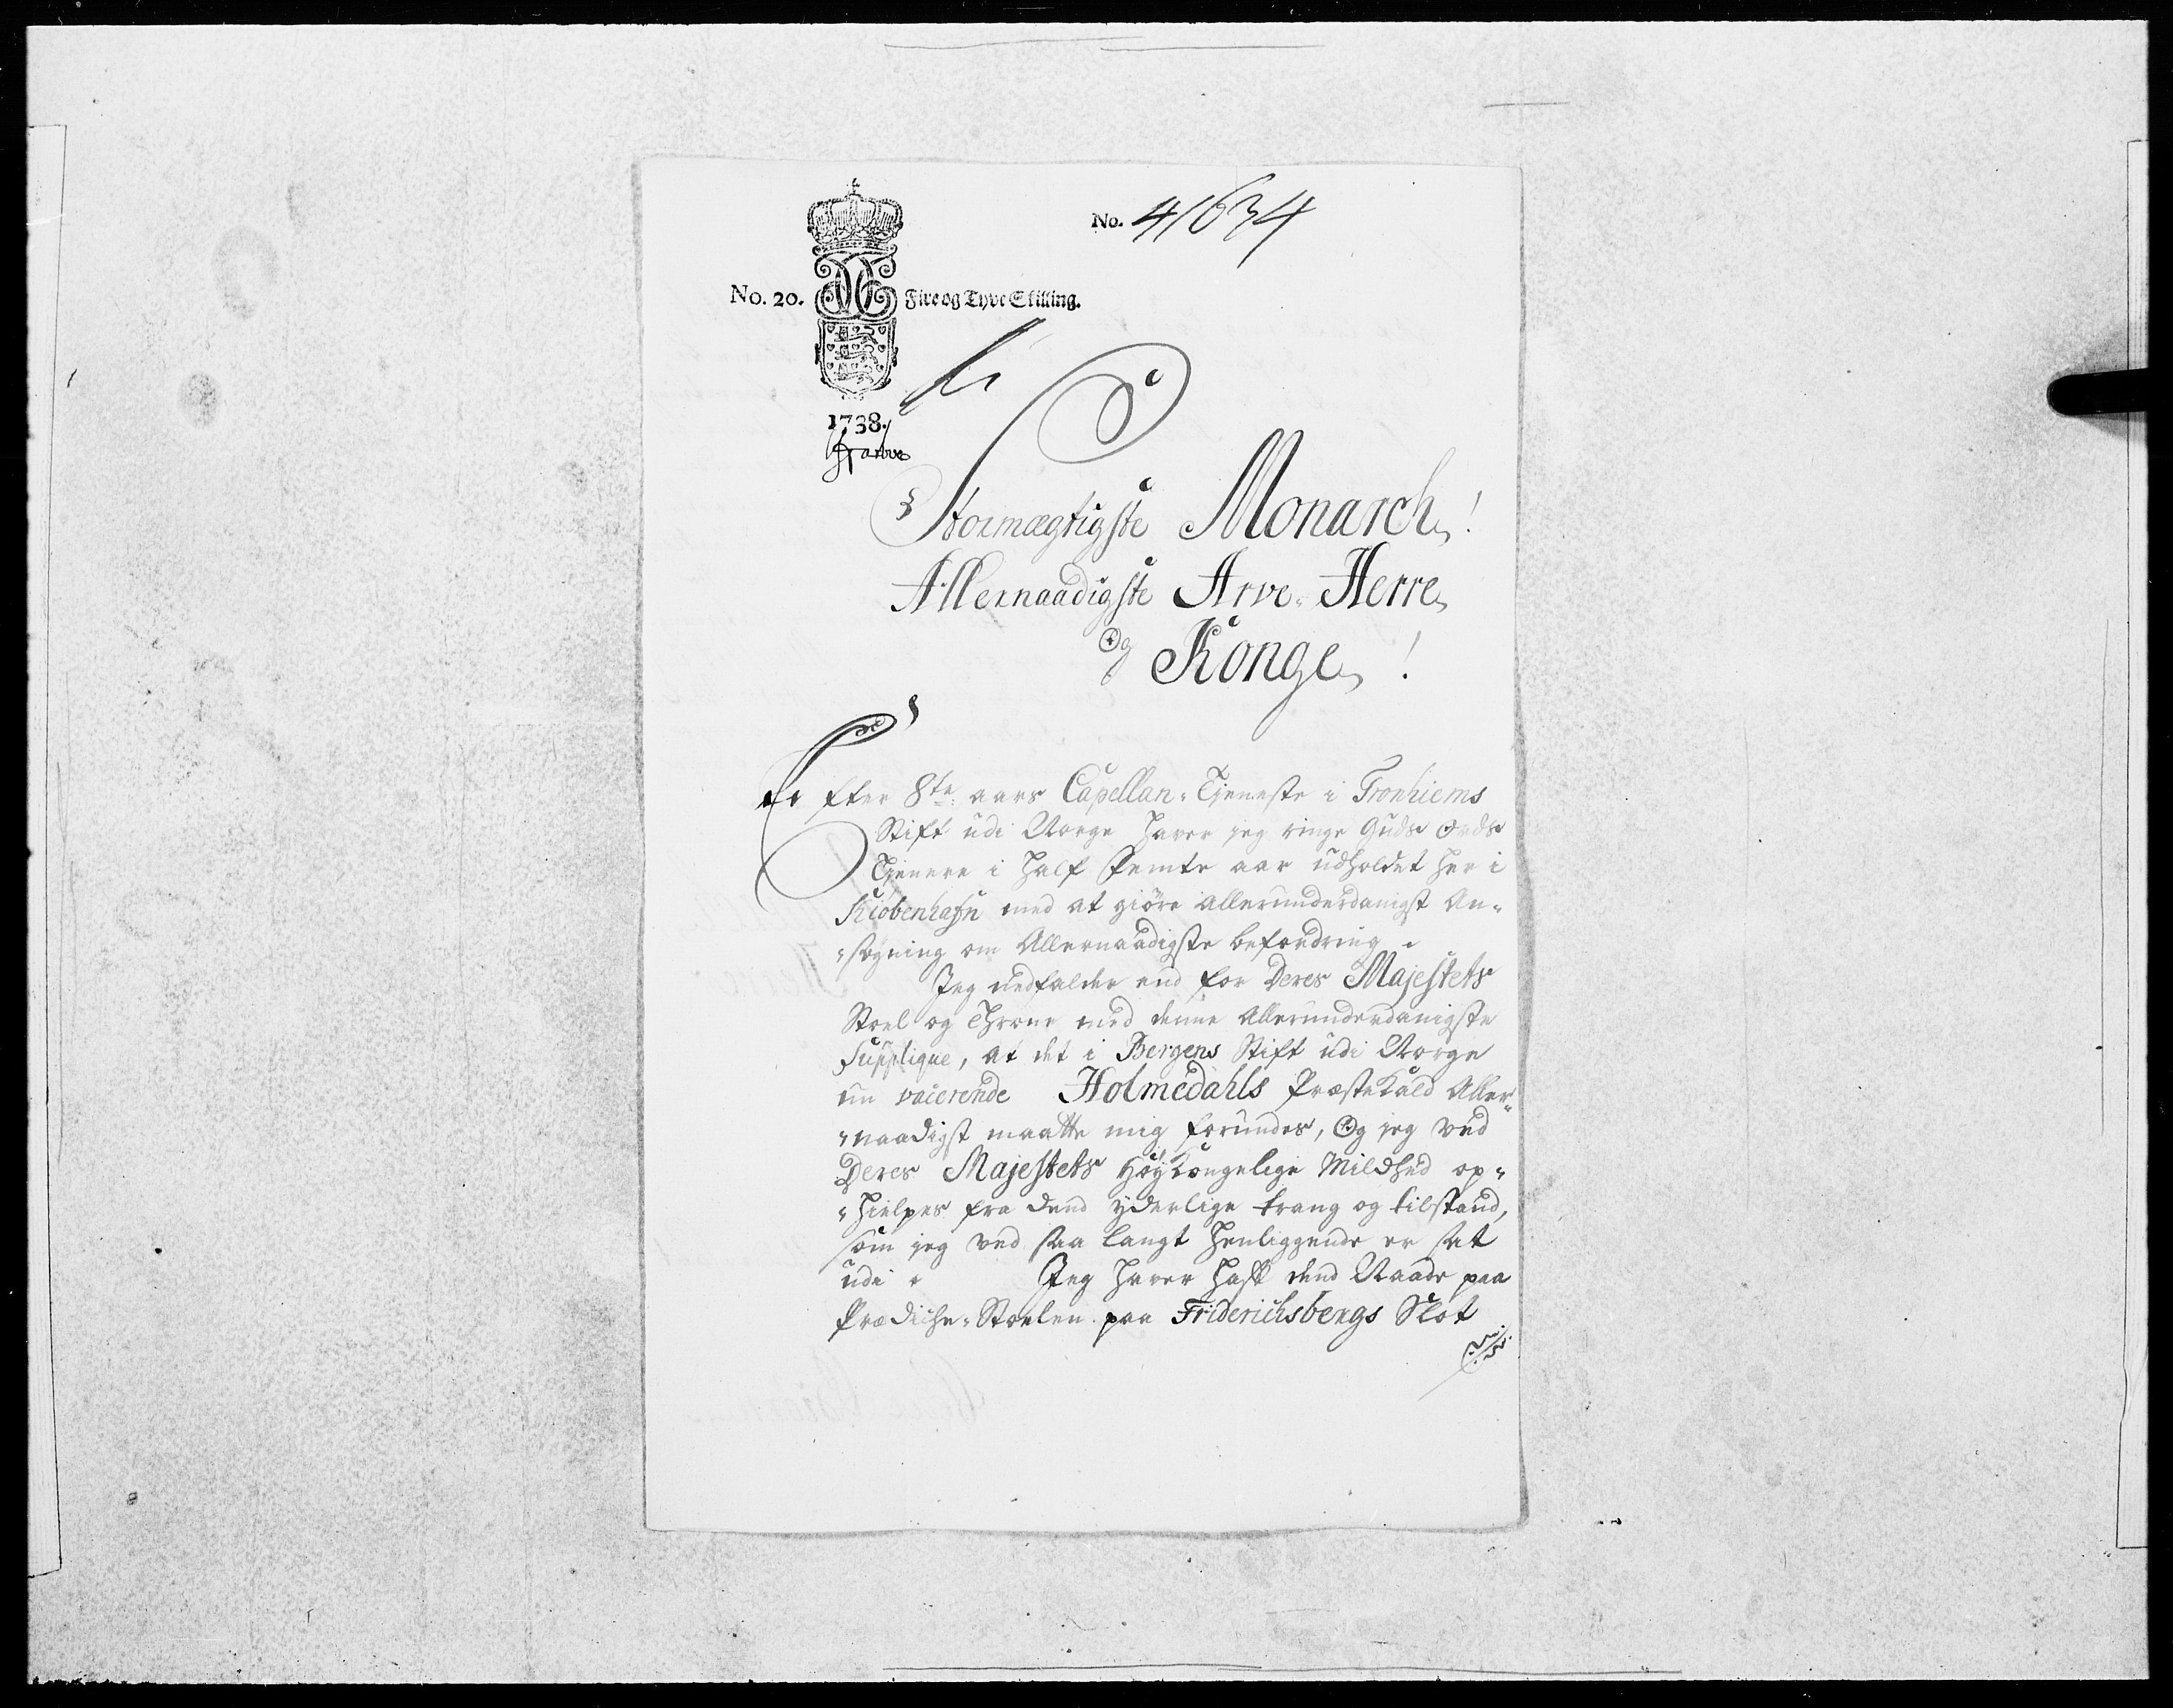 No. 41634
No. 20. Fire og Tyve Skilling.
1738.
Stormægtigste Monarch!
Allernaadigste Arve-Herre
Og Konge!
Efter 8te aars Capellan-Tjeneste i Tronhiems
Stift udi Norge haver jeg ringe Guds Ords
Tjenere i half Femte aar udholdet her i
Kiøbenhafn med at giøre allerunderdanigst An-
-søgning om Allernaadigste befordring.
Jeg nedfalder end for Deres Majestets
Stoel og Throne med denne Allerunderdanigste
Supplique, at det i Bergens Stift udi Norge
nu vacerende Holmedahls Præstekald Aller-
-naadigst maatte mig forundes, Og jeg ved
Deres Majestets Høykongelige Mildhed op-
-hielpes fra dend yderlige trang og tilstand,
som jeg ved saa langt henliggende er sat
udi. Jeg haver hafft dend Naade paa
Prædiche-Stoelen paa Friderichsbergs Slot